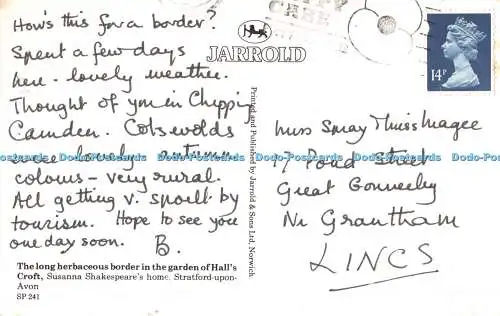 How's this for a border?
Spent a few days
here - lovely weather.
Thought of you in Chipping
Camden. Cotswolds
were lovely autumn
colours - very rural.
All getting v. spoilt by
tourism. Hope to see you
one day soon. B.
The long herbaceous border in the garden of Hall's
Croft, Susanna Shakespeare's home, Stratford-upon-
Avon
SP 241
JARROLD
Printed and Published by Jarrold & Sons Ltd, Norwich
14P
Miss
17 Pond Street
Great Gonnerby
Nr Grantham
LINCS
Dodo-Postcards Dodo-Postcards Dodo-Postcards Dodo-Postcards Dodo-Postcards Dodo-Postcards